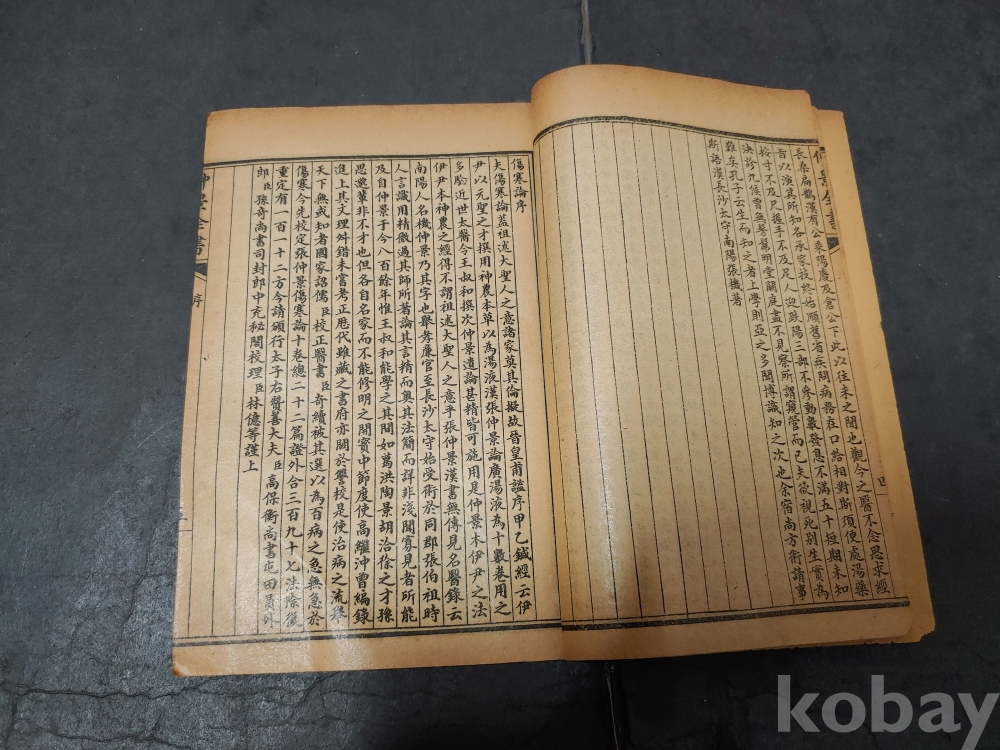 仲景全書
四
長桑扁鵲漢有公乘陽慶及倉公下此以往未之聞也觀今之醫不念思求經
旨以演其所知各承家技終始順舊省疾問病務在口給相對斯須便處湯藥
按寸不及尺握手不及足人迎趺陽三部不參動數發息不滿五十短期未知
決診九候曾無髣髴明堂闕庭盡不見察所謂窺管而已夫欲視死別生實為
難矣孔子云生而知之者上學則亞之多聞博識知之次也余宿尚方術請事
斯語漢長沙太守南陽張機著
傷寒論序
夫傷寒論蓋祖述大聖人之意諸家莫其倫擬故晉皇甫謐序甲乙鍼經云伊
尹以元聖之才撰用神農本草以為湯液漢張仲景論廣湯液為十數卷用之
多驗近世太醫令王叔和撰次仲景遺論甚精皆可施用是仲景本伊尹之法
伊尹本神農之經得不謂祖述大聖人之意乎張仲景漢書無傳見名醫錄云
南陽人名機仲景乃其字也舉孝廉官至長沙太守始受術於同郡張伯祖時
人言識用精微過其師所著論其言精而奧其法簡而詳非淺聞寡見者所能
及自仲景于今八百餘年惟王叔和能學之其間如葛洪陶景胡洽徐之才孫
思邈輩非不才也但各自名家而不能修明之開寶中節度使高繼沖曾編錄
進上其文理舛錯未嘗考正歷代雖藏之書府亦闕於讐校是使治病之流舉
天下無或知者國家詔儒臣校正醫書臣奇續被其選以為百病之急無急於
傷寒今先校定張仲景傷寒論十卷總二十二篇證外合三百九十七法除復
重定有一百一十二方今請頒行太子右贊善大夫臣高保衡尚書屯田員外
郎臣孫奇尚書司封郎中充秘閣校理臣林億等謹上
仲景全書
序
kobay